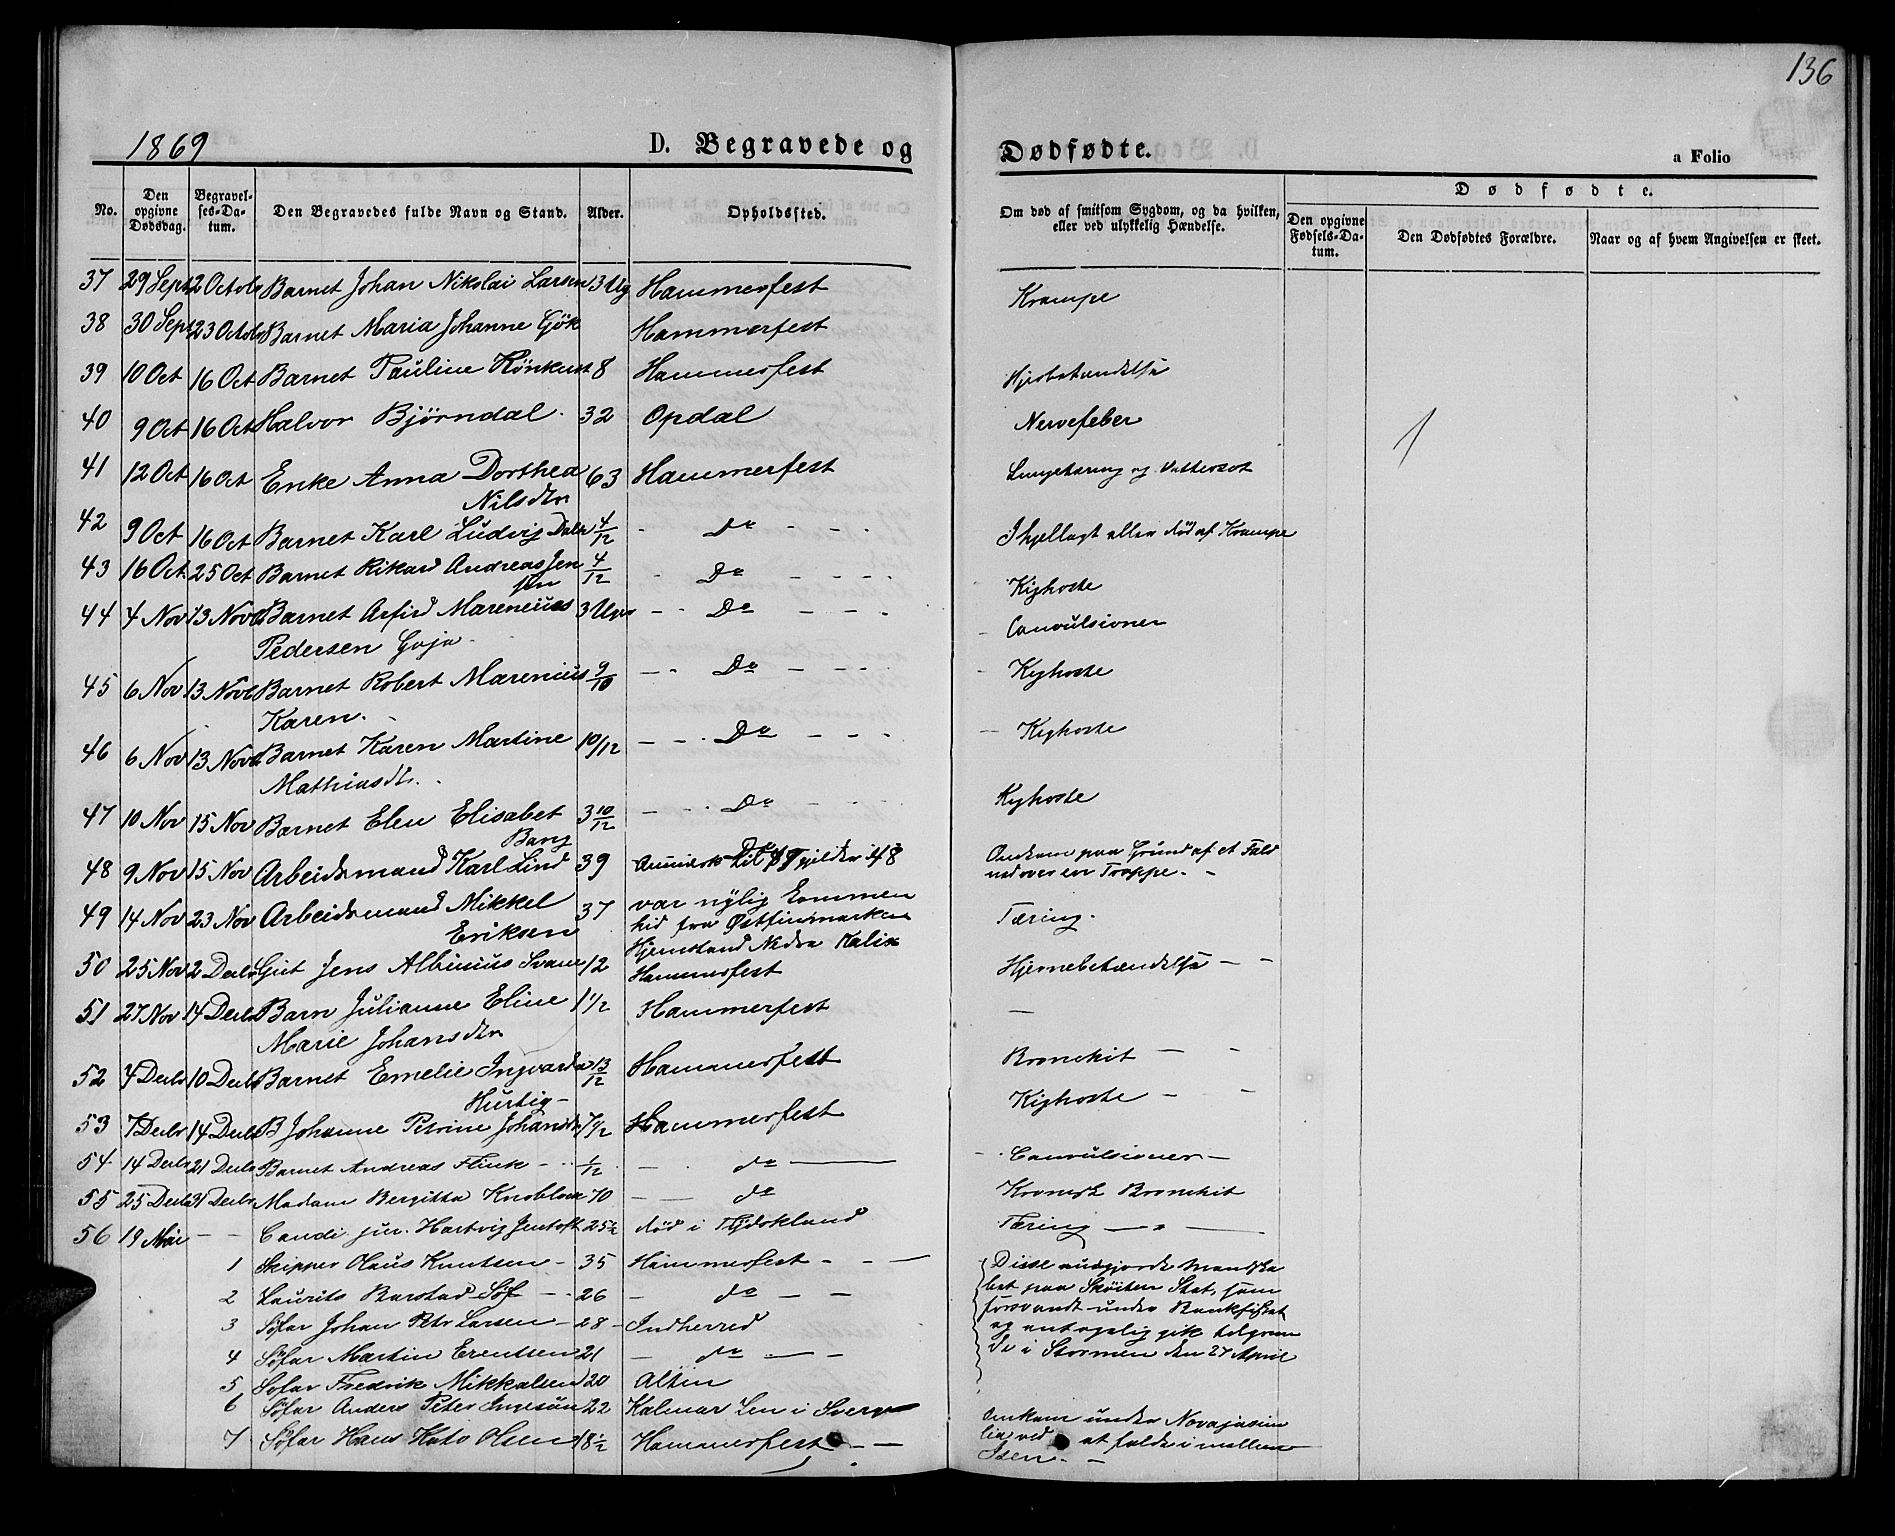 136
1869
D. Begravede og
Dødfødte.
a Folio
No.
Den opgivne Dødsdag.
Begravelses-Datum.
Den Begravedes fulde Navn og Stand.
Alder.
Opholdssted.
Om død af smitsom Sygdom, og da hvilken, eller ved ulykkelig Hændelse.
Dødfødte.
Den opgivne Fødsels-Datum.
Den Dødfødtes Forældre.
Naar og af hvem Angivelsen er skeet.
37 29 Sept 2 Octobr Barnet Johan Nikolai Larsen 3 Ug Hammerfest Krampe
38 30 Sept 23 Octobr Barnet Maria Johanne Gjök Hammerfest
39 10 Oct 16 Oct Barnet Pauline 8 Hammerfest
40 9 Oct 16 Oct Halvor Bjørndal 32 Opdal Nervefeber
41 12 Oct 16 Oct Enke Anna Dorthea 63 Hammerfest Lungetæring og Vattersot
Nilsdtr
42 9 Oct 16 Oct Barnet Karl Ludvig 4/12 - do - - - Ihjellagt eller død af Krampe
43 16 Oct 25 Oct Barnet Rikard Andreas Jen 4/12 - Do - - - Kighoste
sen
44 4 Nov 13 Novb Barnet Arfid Marenius 3 Uger - - Do - - - Convulsioner
Pedersen
45 6 Nov 13 Novb Barnet Robert Marenius 9/10 - - Do - - - Kighoste
Karen.
46 6 Nov 13 Novb Barnet Karen Martine 10/12 - - Do - - - Kighoste
Mathiasdtr.
47 10 Nov 15 Nov Barnet Elen Elisabet 3 10/12 - - Do - - - Kighoste
Bang
48 9 Nov 15 Nov Arbeidsmand Karl Lind 39 Omkom paa Grund af et Fald
ned over en Trappe. -
49 14 Nov 23 Nov Arbeidsmand Mikkel 37 var nylig kommen Tæring.
Eriksen hid fra Østfinmarken
Hjemstand Nedre Kalix
50 25 Nov 2 Decbr Gut Jens Albinius Svane 12 Hammerfest Hjernebetændelse - -
51 27 Nov 14 Decbr Barn Julianne Eline 1 1/2 Hammerfest -
Marie Johansdtr
52 4 Decbr 10 Decbr Barnet Emelie Ingvarda 13/12 Hammerfest Bronchit - -
Hurtig -
53 7 Decbr 14 Decbr B Johanne Petrine Johansdtr 7/12 Hammerfest Kighoste - -
54 14 Decbr 21 Decbr Barnet Andreas Flink - 1/12 - do - Convulsioner -
55 25 Decbr 31 Decbr Madam Bergitta 70 - - do Kronisk Bronchit
56 19 Mai - - Candi. jur. Hartvig Jentoft 25 1/2 død i Tydskland Tæring - -
1 Skipper Olaus Knutsen - 35 Hammerfest - - - Disse udgjorde Mandska
2 Laurits Barstad Söf - 26 - do - - bet paa Skøiten Stat, som
3 Søfar Johan Petr Larsen - 28 - Indherred forsvandt under Bankfisket
4 Søfar Martin Erentsen 21 - do - - og antagelig gik tilgrun
5 Søfar Fredrik Mikkalsen 20 Alten de i Stormen den 27 April
6 Søfar Anders Peter 22 Kalmar Len i Sverg Omkom under
7 Søfar Hans Kato Olsen 18 1/2 Hammerfest - - ved at falde i mellem
Isen. -